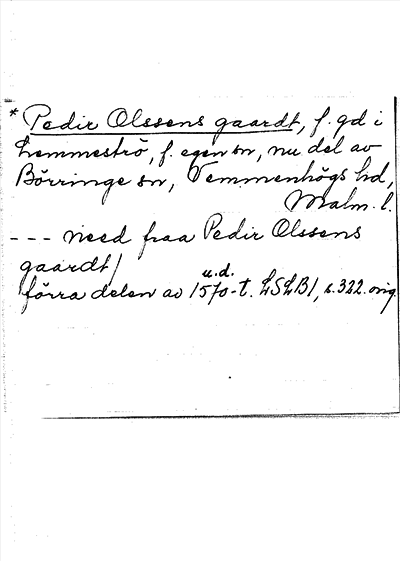 * Pedir Olssens gaardt, f. gd i
Lemmeströ, f. egen sn, nu del av
Börringe sn, Vemmenhögs hd,
Malm. l.
--- need fraa Pedir Olssens
gaardt/
u.d.
förra delen av 1570-t. LSLB1, s. 322. orig.